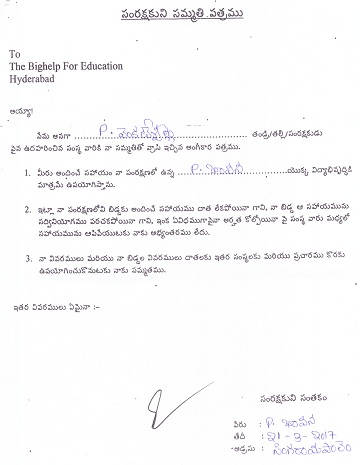 సంరక్షకుని సమ్మతి పత్రము
To
The Bighelp For Education
Hyderabad
అయ్యా!
నేను అనగా P. తండ్రి/తల్లి/సంరక్షకుడు
పైన ఉదహరించిన సంస్థ వారికి నా సమ్మతితో వ్రాసి ఇచ్చిన అంగీకార పత్రము.
1. మీరు అందించే సహాయం నా సంరక్షణలో ఉన్న P. యొక్క విద్యాభివృద్ధికి
మాత్రమే ఉపయోగిస్తాను.
2. ఇట్లా నా సంరక్షణలోని బిడ్డకు అందించే సహాయము దాత లేకపోయినా గాని, నా బిడ్డ ఆ సహాయమును
సద్వినియోగము పరచకపోయినా గాని, ఇంక ఏవిధముగానైనా అర్హత కోల్పోయినా పై సంస్థ వారు మధ్యలో
సహాయమును ఆపివేయుటకు నాకు అభ్యంతరము లేదు.
3. నా వివరములు మరియు నా బిడ్డల వివరములు దాతలకు ఇతర సంస్థలకు మరియు ప్రచారము కొరకు
ఉపయోగించుకొనుటకు నాకు సమ్మతము.
ఇతర వివరములు ఏమైనా :-
సంరక్షకుని సంతకం
పేరు : P.
తేదీ : 21-3-2017
అడ్రసు :